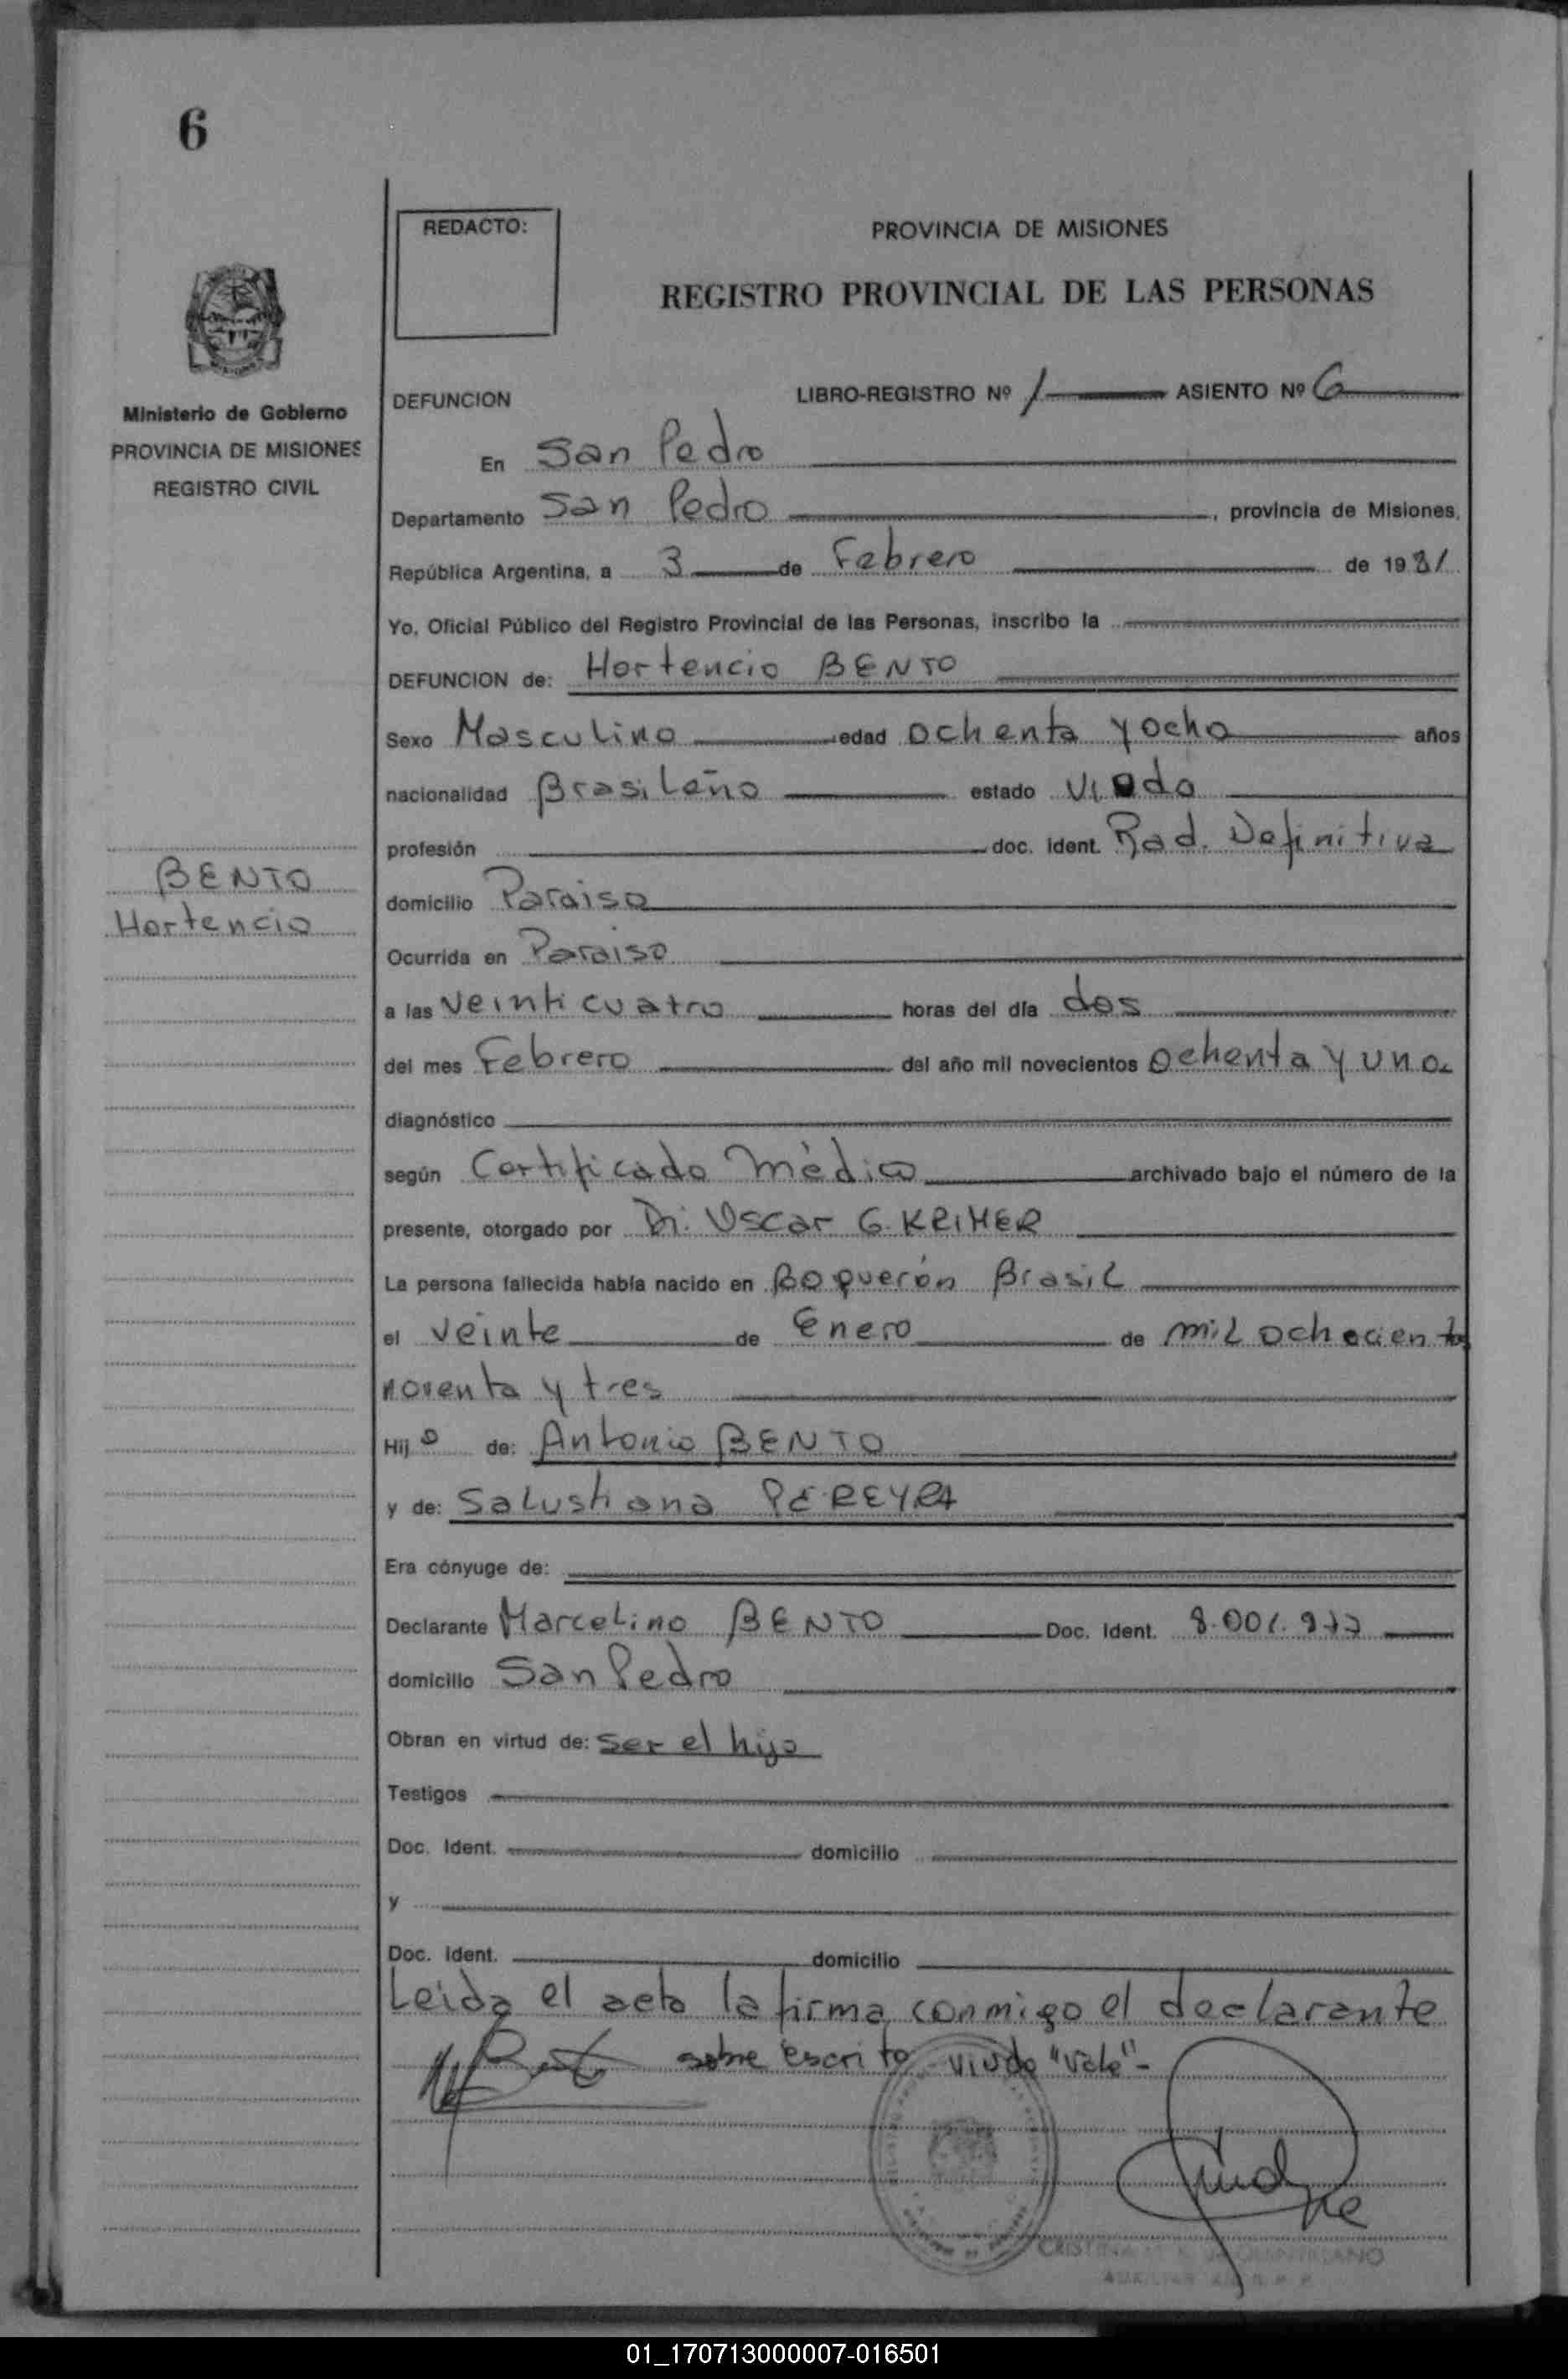 6
REDACTO:
PROVINCIA DE MISIONES
REGISTRO PROVINCIAL DE LAS PERSONAS
Ministerio de Gobierno
PROVINCIA DE MISIONES
REGISTRO CIVIL
DEFUNCION LIBRO-REGISTRO Nº 1 ASIENTO Nº 6
En San Pedro
Departamento San Pedro, provincia de Misiones,
República Argentina, a 3 de Febrero de 1981
Yo, Oficial Público del Registro Provincial de las Personas, inscribo la
DEFUNCION de: Hortencio BENTO
Sexo Masculino edad ochenta y ocho años
nacionalidad Brasileño estado viudo
profesión doc. ident. Rad. Definitiva
BENTO
Hortencio
domicilio Paraiso
Ocurrida en Paraiso
a las veinticuatro horas del día dos
del mes Febrero del año mil novecientos ochenta y uno
diagnóstico
según Certificado Mèdico archivado bajo el número de la
presente, otorgado por Dr. Oscar G. KRIMER
La persona fallecida había nacido en Boquerón Brasil
el veinte de Enero de mil ochocientos
noventa y tres
Hijo de: Antonio BENTO
y de: Salustiana PEREYRA
Era cónyuge de:
Declarante Marcelino BENTO Doc. Ident.
domicilio San Pedro
Obran en virtud de: Ser el hijo
Testigos
Doc. Ident. domicilio
y
Doc. Ident. domicilio
Leida el acta la firma conmigo el declarante
sobre escrito viudo "vale"-
01_170713000007-016501